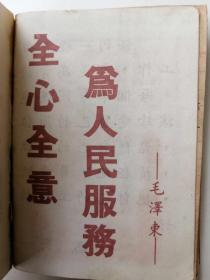 全心全意
爲人民服務
——毛澤東——